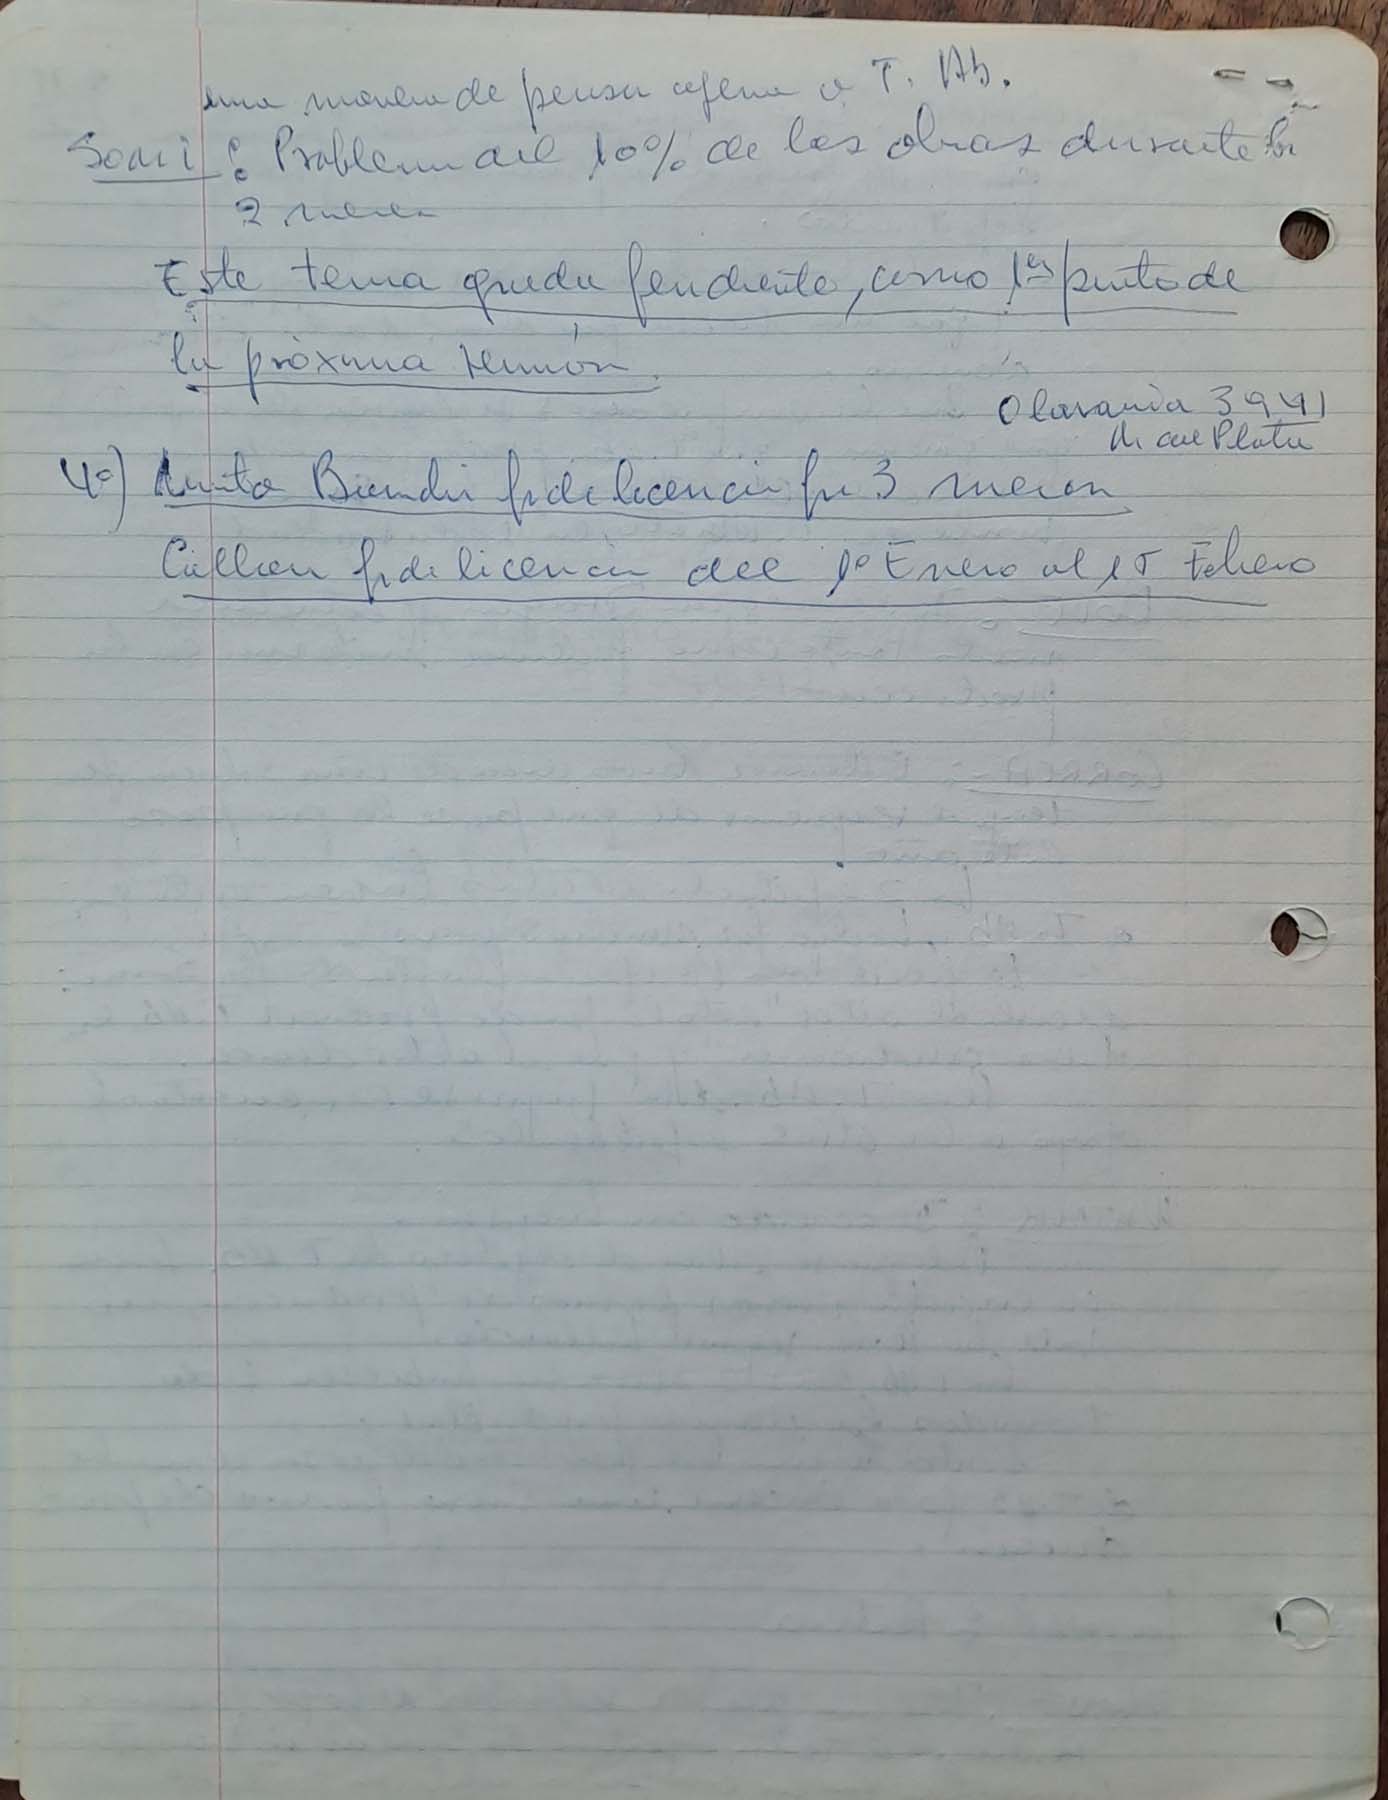 una manera de pensar ajena a T. Ab.
Somi: Problema del 10% de las obras durante los
2 meses
Este tema queda pendiente, como 1er punto de
la próxima reunión.
Olavarría 3941
M. del Plata
4º) Anita Biandri pide licencia por 3 meses
pide licencia del 1º Enero al 15 Febrero